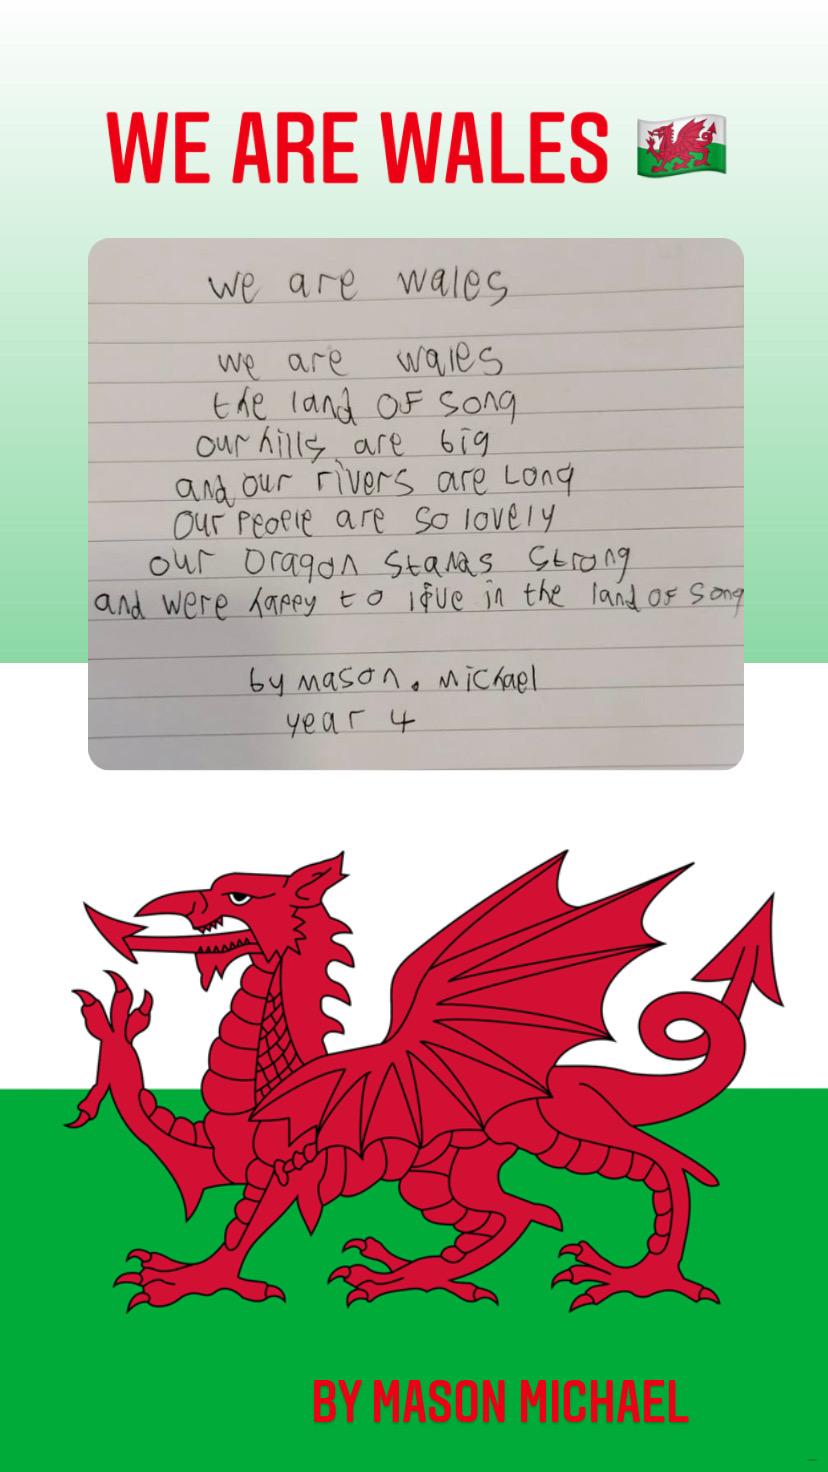 WE ARE WALES 🏴󠁧󠁢󠁷󠁬󠁳󠁿
we are wales
we are wales
the land of song
our hills are big
and our rivers are Long
our people are so lovely
our Dragon stands strong
and were happy to live in the land of song
by mason. michael
year 4
BY MASON MICHAEL